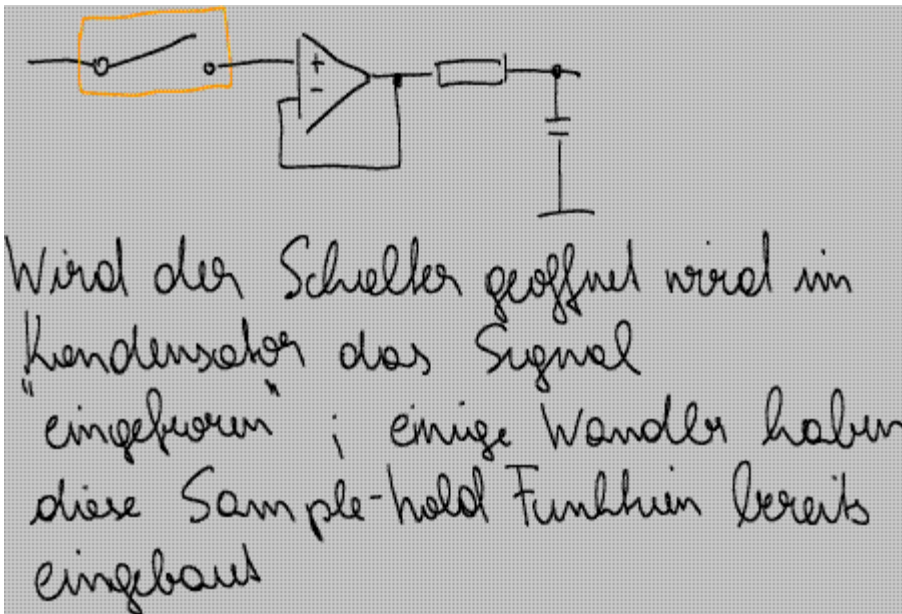 +
-
Wird der Schalter geöffnet wird im
Kondensator das Signal
"eingefroren" ; einige Wandler haben
diese Sample-hold Funktion bereits
eingebaut